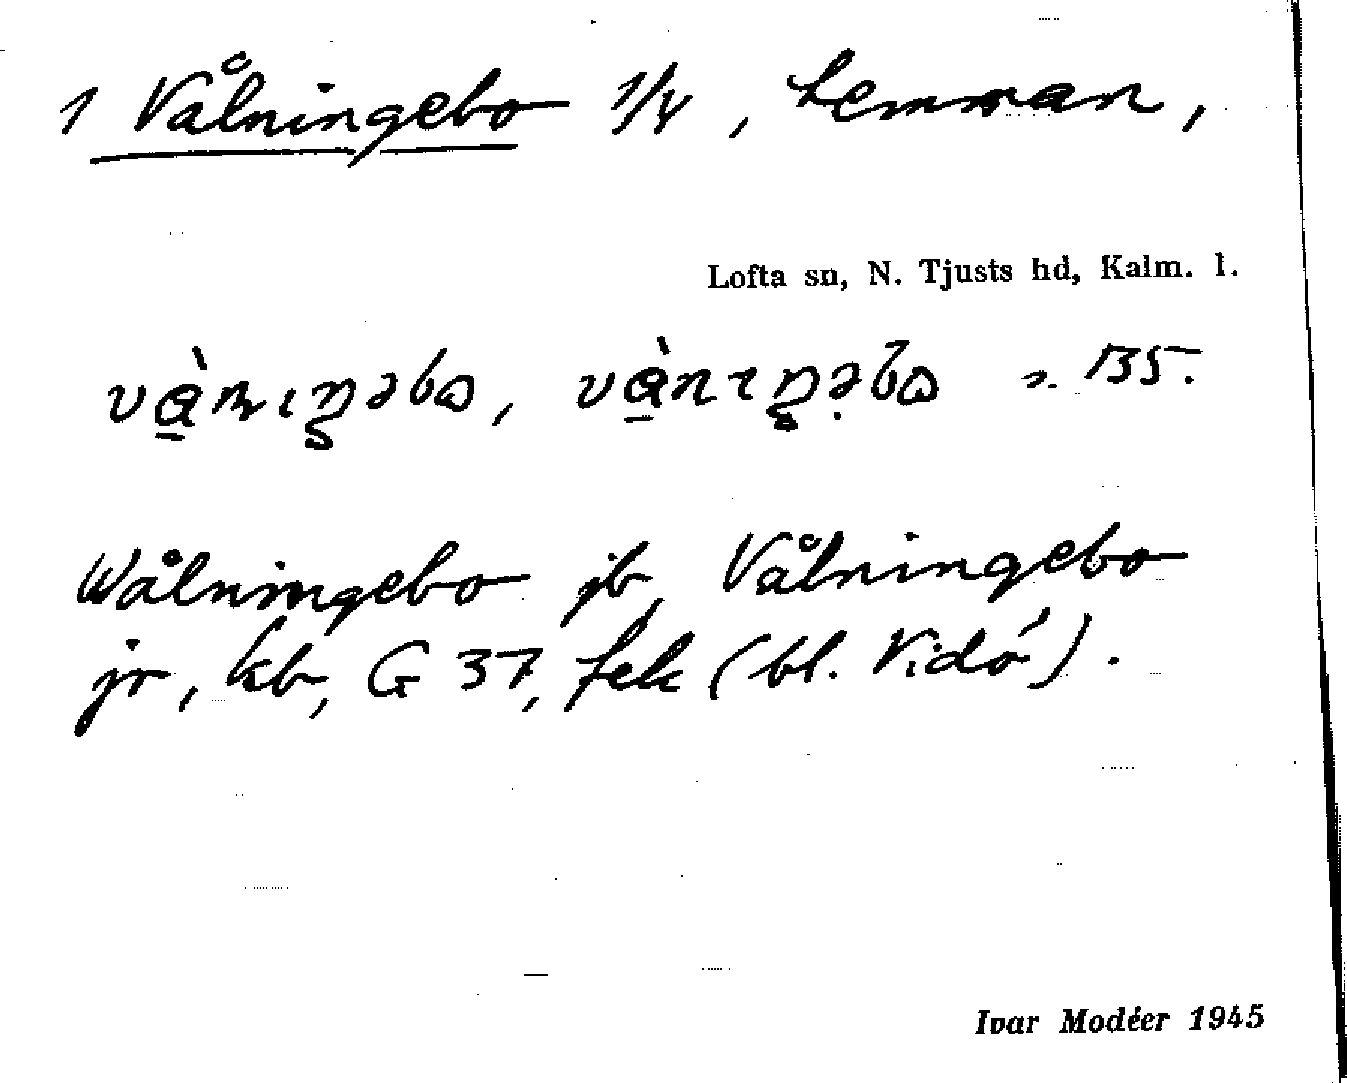 1 Vålningebo 1/4, hemman,
Lofta sn, N. Tjusts hd, Kalm. l.
Wålningebo jb, Vålningebo
jr, kb, G 37, fek (bl. Vidó).
Ivar Modéer 1945